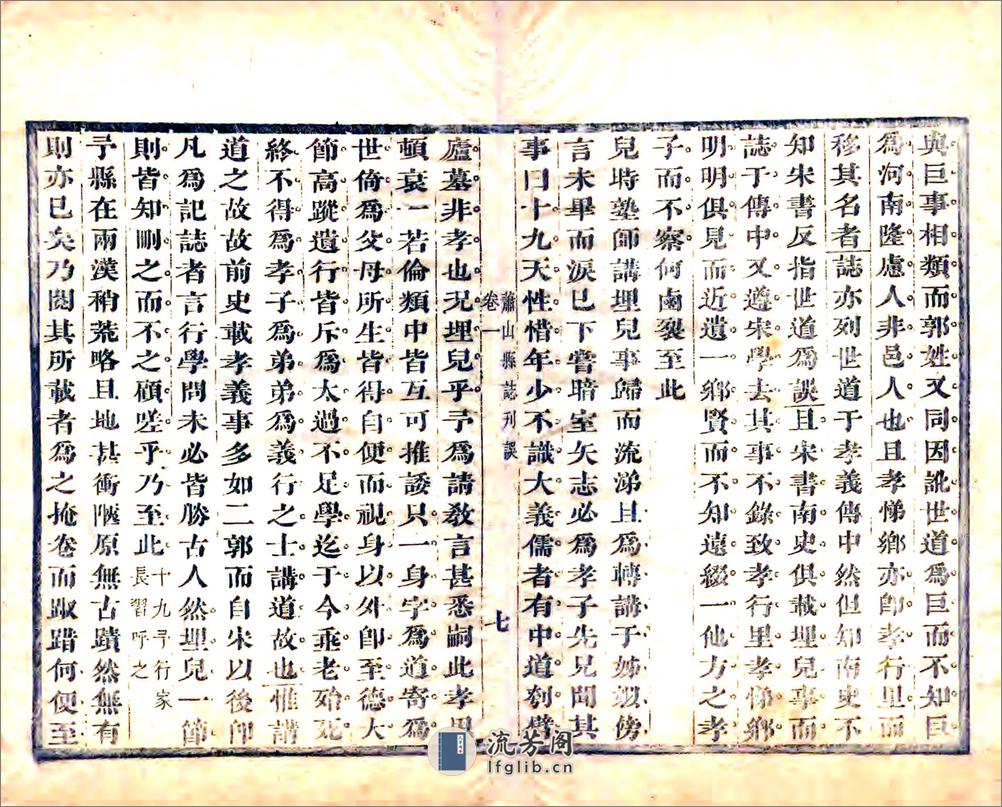 與巨事相類而郭姓又同因訛世道爲巨而不知巨
爲河南隆慮人非邑人也且孝悌鄉亦卽孝行里而
移其名者誌亦列世道于孝義傳中然但知南史不
知宋書反指世道爲誤且宋書南史俱載埋兒事而
誌于傳中又遵宋學去其事不錄致孝行里孝悌鄉
明明俱見而近遺一鄉賢而不知遠綴一他方之孝
子而不察何鹵裂至此
兒時塾師講埋兒事歸而流涕且爲轉講于姊娰傍
言未畢而淚已下嘗暗室矢志必爲孝子先兄聞其
事曰十九天性惜年少不識大義儒者有中道刲臂
蕭山縣誌刊誤
卷一
七
廬墓非孝也況埋兒乎予爲請敎言甚悉嗣此孝思
頓衰一若倫類中皆互可推諉只一身字爲道寄爲
世倚爲父母所生皆得自便而視身以外卽至德大
節高蹤遺行皆斥爲太過不足學迄于今乖老殆死
終不得爲孝子爲弟弟爲義行之士講道故也惟講
道之故故前史載孝義事多如二郭而自宋以後卽
凡爲記誌者言行學問未必皆勝古人然埋兒一節
則皆知刪之而不之碩嗟乎乃至此十九予行家長習呼之
予縣在兩漢稍荒略且地甚衝陋原無古蹟然無有
則亦已矣乃閱其所載者爲之掩卷而踧踖何便至
流芳阁
lfglib.cn